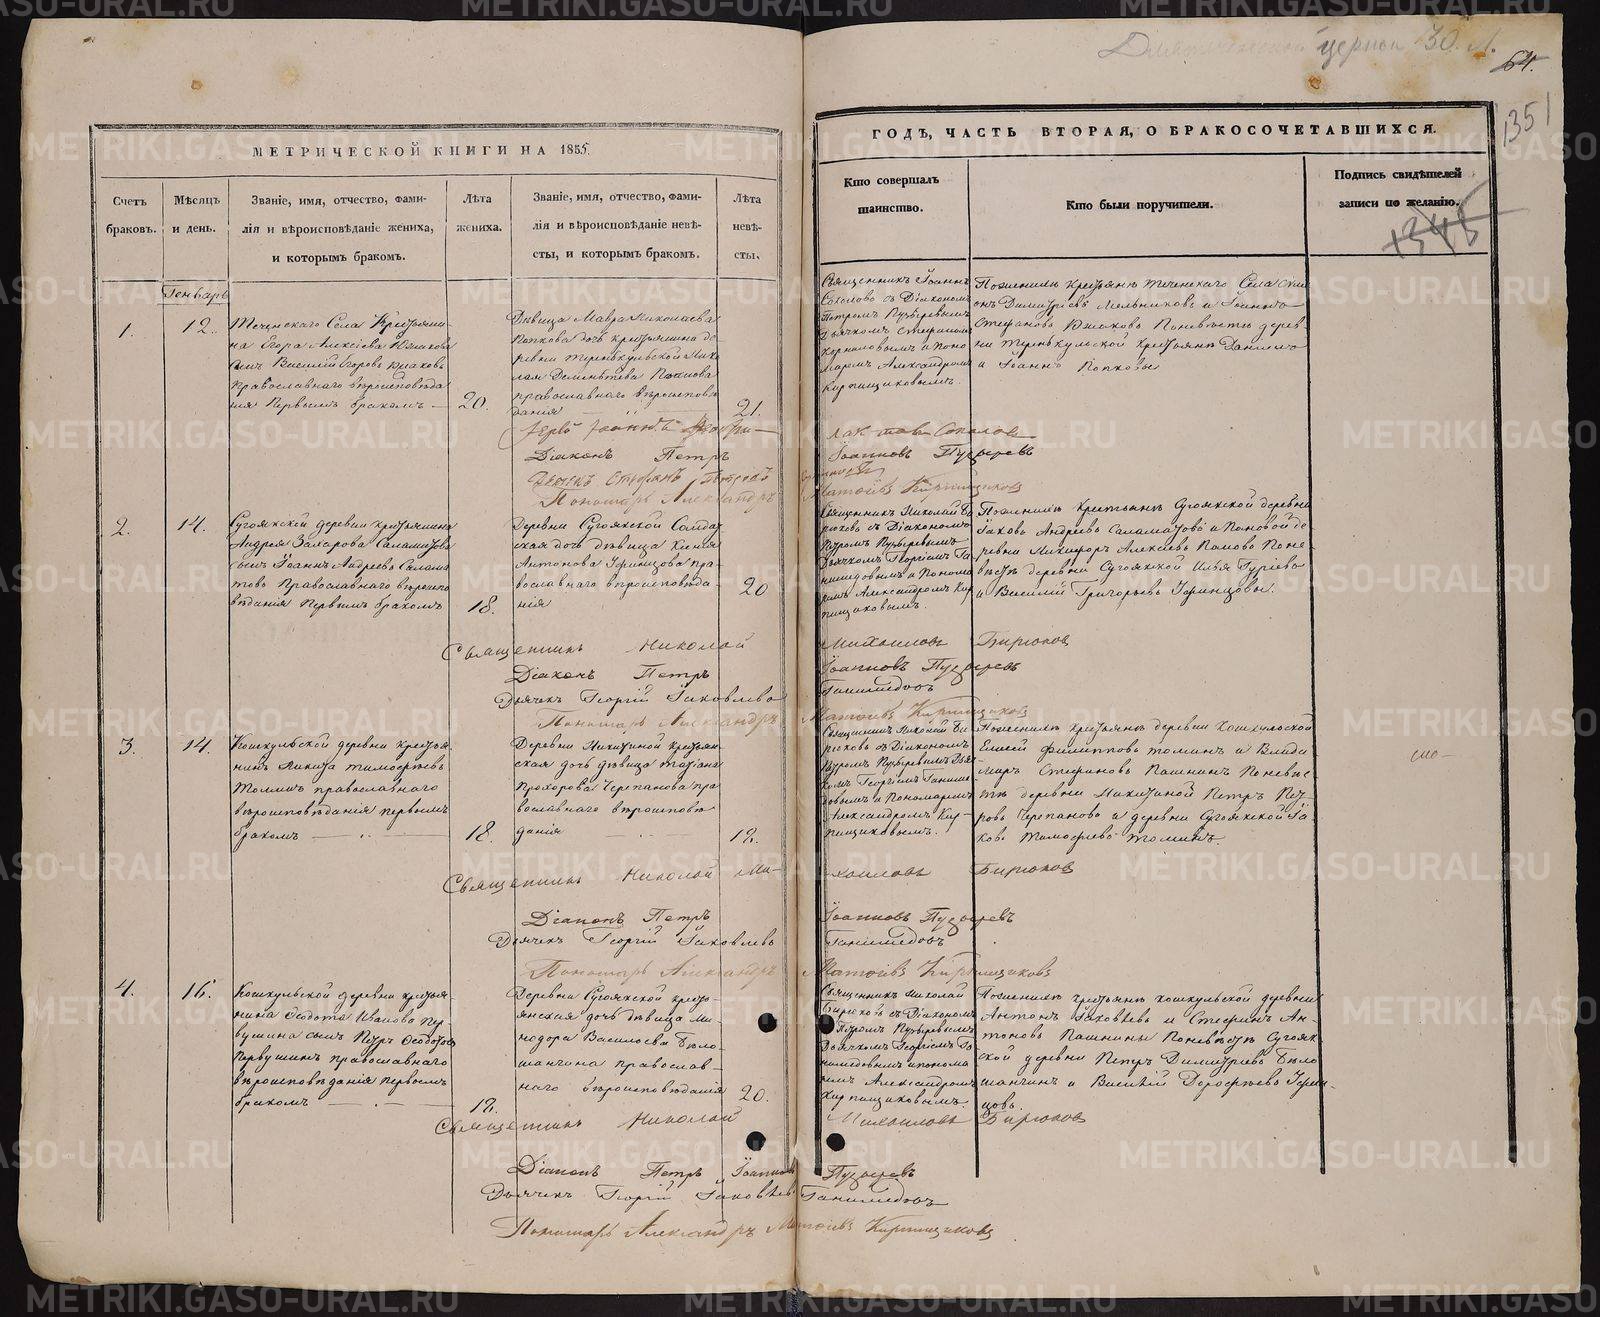 церкви 30. л.
64.
135
МЕТРИЧЕСКОЙ КНИГИ НА 1855
ГОДЪ, ЧАСТЬ ВТОРАЯ, О БРАКОСОЧЕТАВШИХСЯ.
Счетъ
браковъ.
Мѣсяцъ
и день.
Званіе, имя, отчество, фами-
лія и вѣроисповѣданіе жениха,
и которымъ бракомъ.
Лѣта
жениха.
Званіе, имя, отчество, фами-
лія и вѣроисповѣданіе невѣ-
сты, и которымъ бракомъ.
Лѣта
невѣ-
сты.
Кто совершалъ
таинство.
Кто были поручители.
Подпись свидѣтелей
записи по желанію.
1345
Генварь
1.
12.
Теченскаго Села Крестьяни-
на Егора Алексѣева
сынъ Василій Егоровъ
православнаго вѣроисповѣда
нія первымъ бракомъ
20.
Дѣвица Мавра Николаева
Попкова дочь крестьянина де
ревни Теренькульской Нико
лая Дементьева Попкова
православнаго вѣроисповѣ
данія
21.
Священникъ Іоаннъ
Соколовъ съ Діакономъ
Петромъ Пузыревымъ
Дьячкомъ Стефаномъ
и Поно
маремъ Александромъ
Кирпищиковымъ.
По женихѣ крестьяне Теченскаго Села
Димитріевъ Мельниковъ и Іоаннъ
Стефановъ По невѣстѣ дерев
ни Теренькульской крестьяне Даніилъ
и Іоаннъ Попковы
Іерей Іоаннъ
Соколовъ
Діаконъ Петръ Іоанновъ Пузыревъ
Дьячекъ Стефанъ Петровъ
Пономарь Александръ Матѳіевъ Кирпищиковъ
2.
14.
Сугоякской деревни крестьянина
Андрея Захарова Саламатова
сынъ Іоаннъ Андреевъ Салама
товъ Православнаго вѣроиспо
вѣданія Первымъ бракомъ
18.
Деревни Сугоякской Солдат
ская дочь дѣвица Ксенія
Антонова Уфинцова пра
вославнаго вѣроисповѣда-
нія
20
Священникъ Николай Би
рюковъ съ Діакономъ
Петромъ Пузыревымъ
Дьячкомъ Георгіемъ Га
нимедовымъ и Понома
ремъ Александромъ Кир
пищиковымъ.
По женихѣ крестьяне Сугоякской деревни
Іаковъ Андреевъ Саламатовъ и Пановой де
ревни Никифоръ Алексѣевъ Пановъ По не
вѣстѣ деревни Сугоякской Илья Гурьевъ
и Василій Григорьевъ Уфинцовы.
Священникъ Николай Михаиловъ Бирюковъ
Діаконъ Петръ Іоанновъ Пузыревъ
Дьячекъ Георгій Іаковлевъ Ганимедовъ
Пономарь Александръ Матѳіевъ Кирпищиковъ
3.
14.
Кошкульской деревни крестья
нинъ Никита Тимоѳеевъ
Томинъ православнаго
вѣроисповѣданія первымъ
бракомъ
18.
Деревни Никитиной крестьян
ская дочь дѣвица Татіана
Прохорова Черепанова пра
вославнаго вѣроисповѣ
данія
18.
Священникъ Николай Би
рюковъ съ Діакономъ
Петромъ Пузыревымъ Дья
комъ Георгіемъ Ганиме
довымъ и Пономаремъ
Александромъ Кир-
пищиковымъ.
По женихѣ крестьяне деревни Кошкульской
Елисей Филипповъ Томинъ и Влади
миръ Стефановъ Пашнинъ По невѣс
тѣ деревни Никитиной Петръ Пет
ровъ Черепановъ и деревни Сугоякской Іа
ковъ Тимоѳеевъ Томинъ.
Священникъ Николай Михаиловъ Бирюковъ
Діаконъ Петръ Іоанновъ Пузыревъ
Дьячекъ Георгій Іаковлевъ Ганимедовъ
Пономарь Александръ Матѳіевъ Кирпищиковъ
4.
16.
Кошкульской деревни крестья-
нина Ѳедота Иванова Пер
вушина сынъ Петръ Ѳедотовъ
Первушинъ православнаго
вѣроисповѣданія первымъ
бракомъ
18.
Деревни Сугоякской кресть-
янская дочь дѣвица Ми-
нодора Васильева Бѣло-
шангина православ-
наго вѣроисповѣданія
20.
Священникъ Николай
Бирюковъ съ Діакономъ
Петромъ Пузыревымъ
Дьячкомъ Георгіемъ Га
нимедовымъ и понома
ремъ Александромъ
Кирпищиковымъ.
По женихѣ крестьяне Кошкульской деревни
Антонъ Іаковлевъ и Стефанъ Ан-
тоновъ Пашнины По невѣстѣ Сугояк
ской деревни Петръ Димитріевъ Бѣло
шангинъ и Василій Дороѳеевъ Уфин-
цовъ.
Священникъ Николай Михаиловъ Бирюковъ
Діаконъ Петръ Іоанновъ Пузыревъ
Дьячекъ Георгій Іаковлевъ Ганимедовъ
Пономарь Александръ Матѳіевъ Кирпищиковъ
METRIKI.GASO-URAL.RU